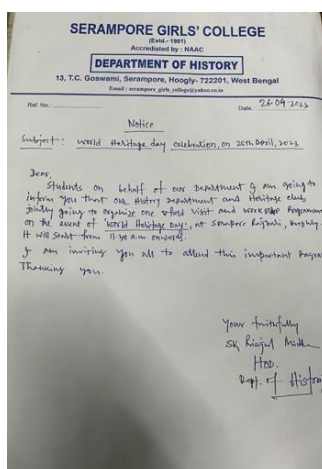 SERAMPORE GIRLS' COLLEGE
(Estd.- 1981)
Accredited by : NAAC
DEPARTMENT OF HISTORY
13, T.C. Goswami, Serampore, Hoogly- 722201, West Bengal
Email : serampore_girls_college@yahoo.co.in
Ref. No.:
Date: 26-04-2023
Notice
Subject:- World Heritage day celebration, on 26th April, 2023
Dear,
Students on behalf of our Department I am going to
inform you that our History Department and Heritage club
jointly going to organize one field visit and workshop Programme
on the event of 'World Heritage Day', at Serampore Rajbari, Hooghly.
It will start from 11.30 a.m onwards.
I am inviting you all to attend this important Program
Thanking you.
Your faithfully
SK
HOD.
Dept. of History